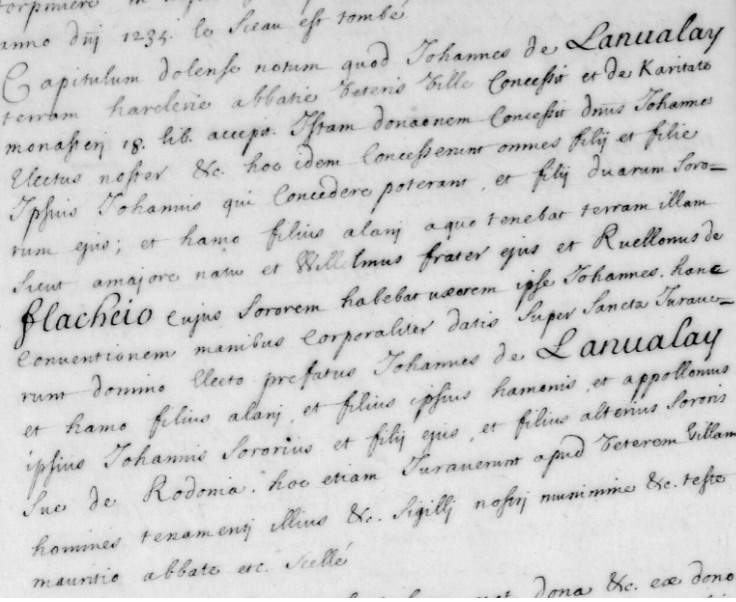 anno dnj 1235. le sceau est tombé
Capitulum dolense notum quod Johannes de Lanualay
terram harelerie abbatie Veteris Ville Concessit et de Karitate
monasterj 18. lib. accepit. Istam donaonem Concessit dnus Johannes
Electus noster &c. hoc idem Concesserunt omnes filij et filie
Ipsius Johannis qui Concedere poterant, et filij duarum soro-
rum ejus; et hamo filius alanj aquo tenebat terram illam
sicut amajore natu et Willelmus frater ejus et Ruellonus de
flacheio Cujus sororem habebat uxorem ipse Johannes. hanc
Conventionem manibus Corporaliter datis super sancta Jurave-
runt domino Electo prefatus Johannes de Lanualay
et hamo filius alanj, et filius ipsius hamonis, et appollonius
ipsius Johannis sororius et filij ejus, et filius alterius sororis
sue de Rodonia. hoc etiam Juraverunt apud Veterem Villam
homines tenamentj illius &c. sigillj nostrj munimine &c. teste
mauritio abbate etc. scellé
dona &c. exe dono